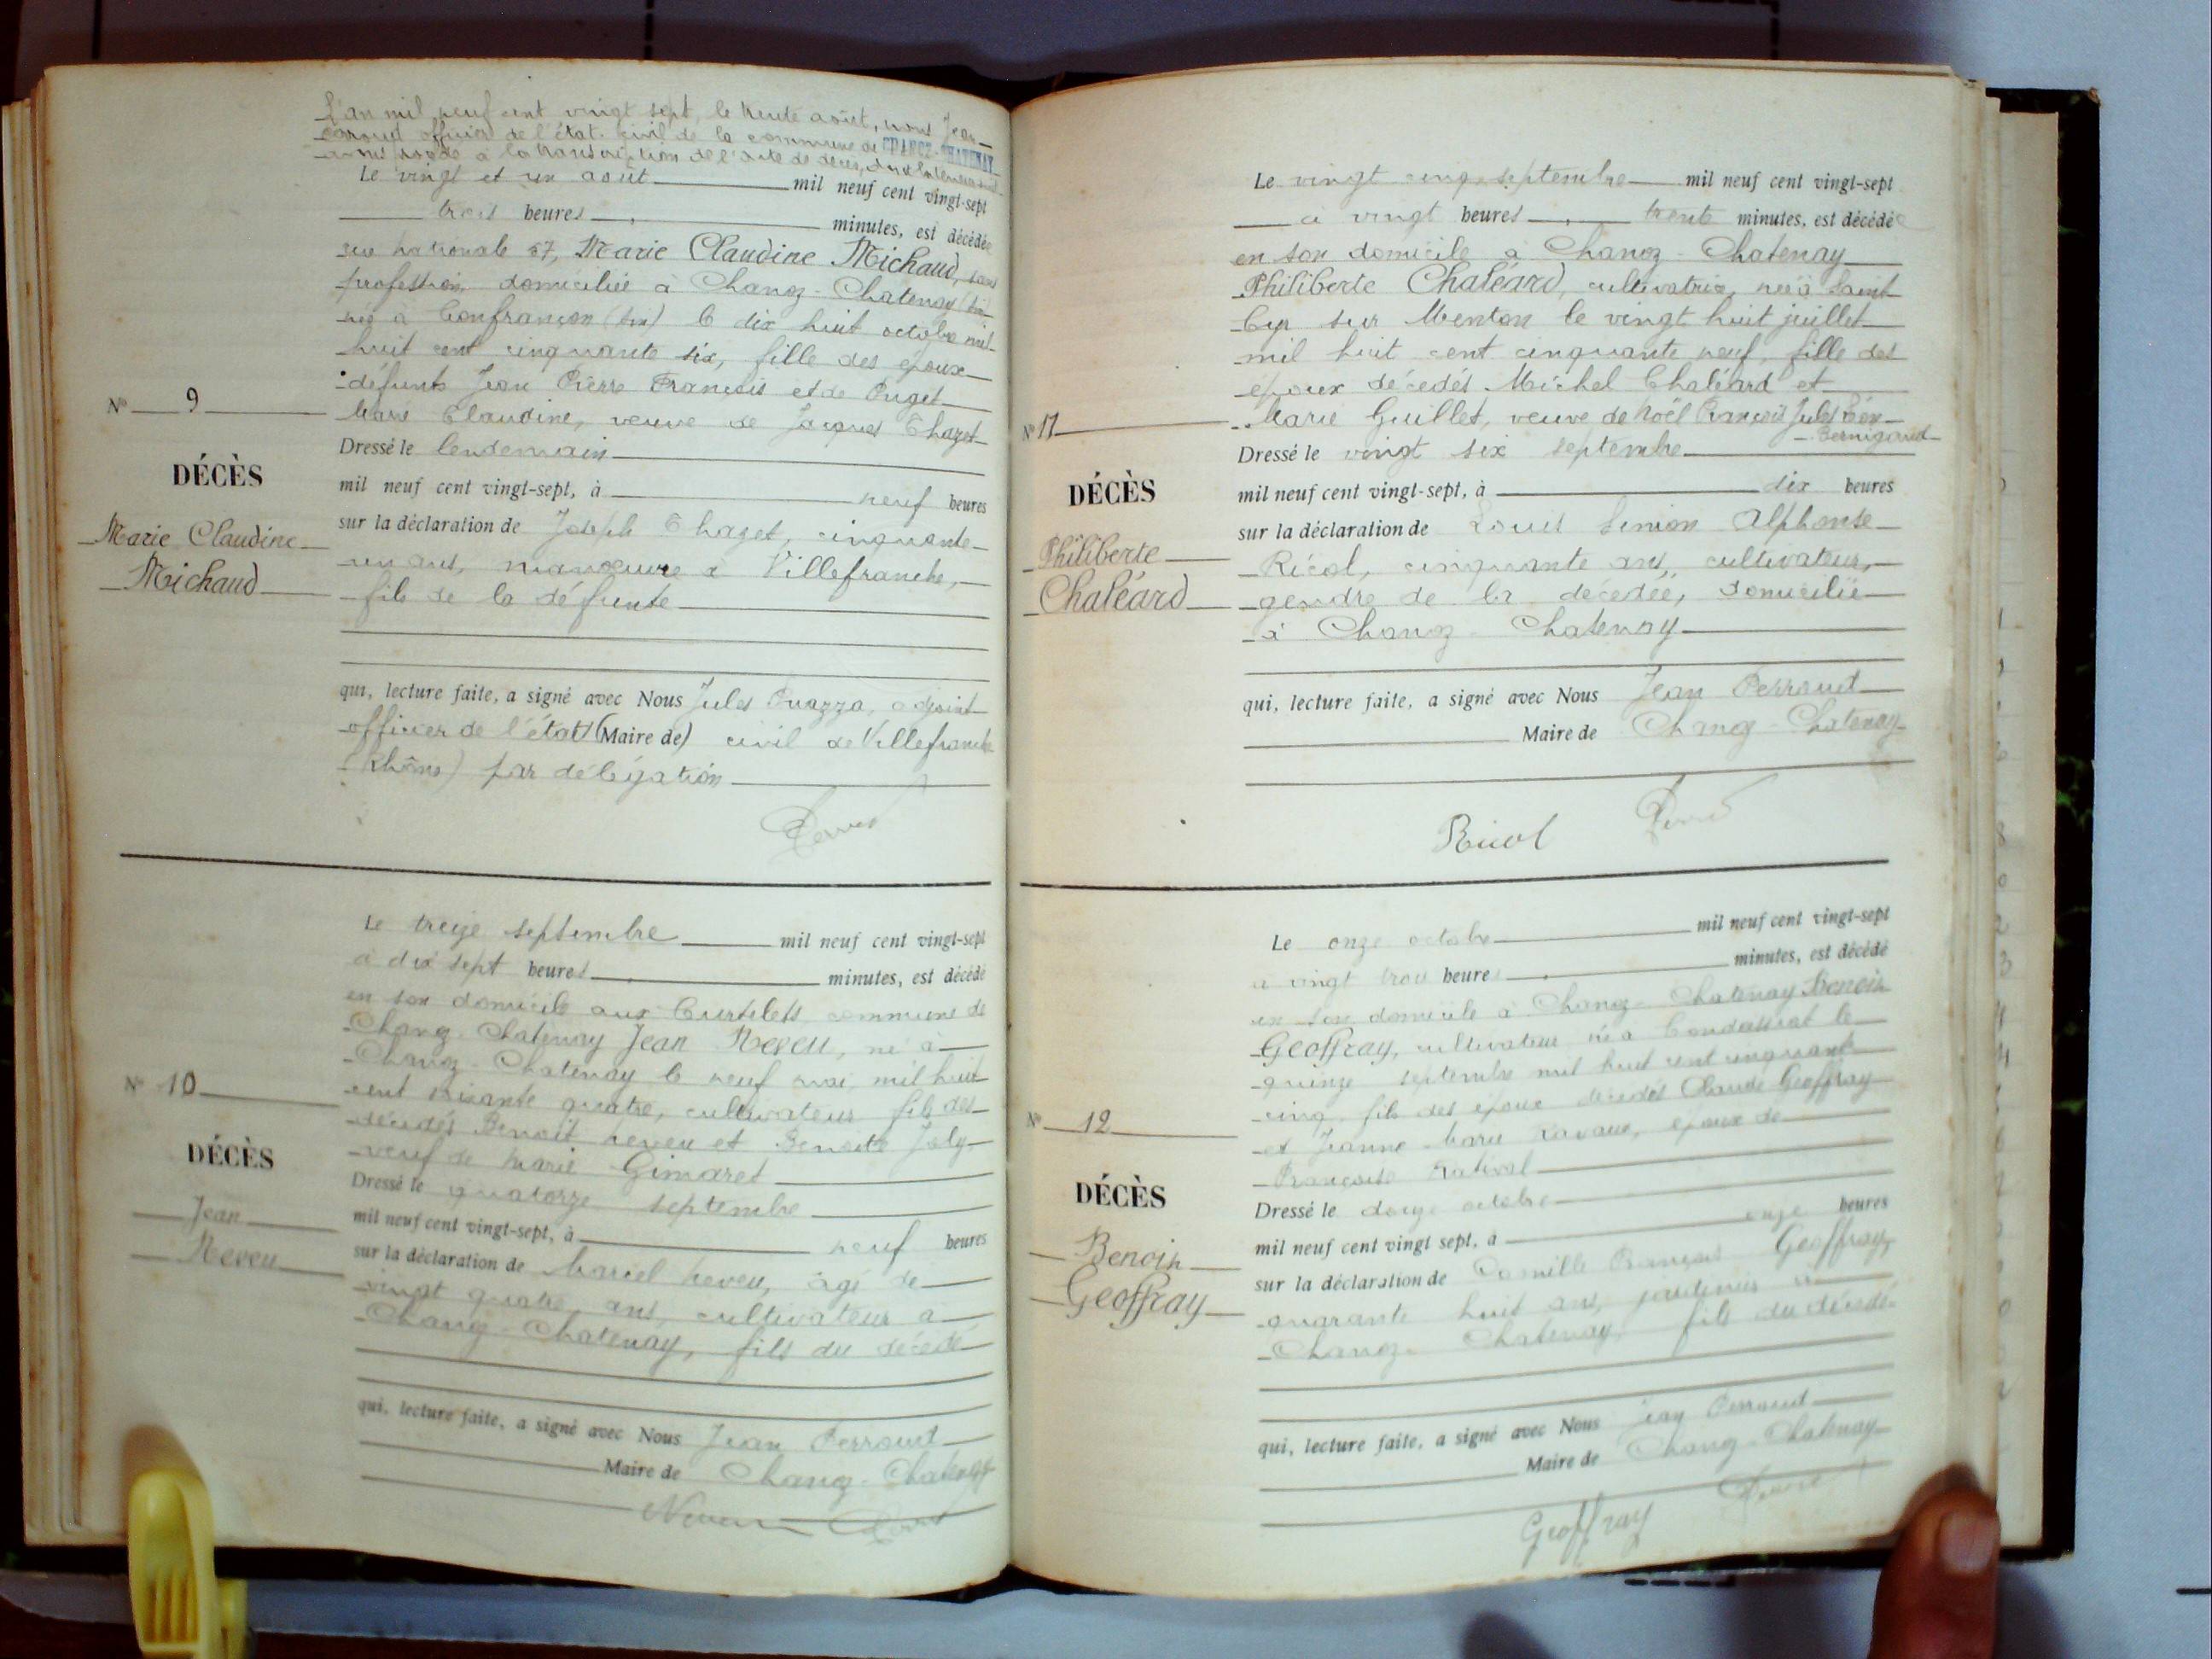 L'an mil neuf cent vingt sept, le trente août, nous Jean
officier de l'état civil de la commune de CHANOZ-CHATENAY
à la transcription de l'acte de décès,
Le vingt et un août mil neuf cent vingt-sept
trois heures minutes, est décédée
rue nationale 57, Marie Claudine Michaud, sans
profession, domiciliée à Chanoz-Chatenay (Ain
née à Confrançon (Ain) le dix huit octobre mil
huit cent cinquante six, fille des époux
défunts Jean Pierre François et de Puget
Marie Claudine, veuve de Jacques Thazet
N° 9
Dressé le lendemain
DÉCÈS
mil neuf cent vingt-sept, à neuf heures
Marie Claudine
Michaud
sur la déclaration de Joseph Thazet, cinquante
un ans, manœuvre à Villefranche,
fils de la défunte
qui, lecture faite, a signé avec Nous Jules Ouazza, adjoint
officier de l'état (Maire de) civil de Villefranche
(Rhône) par délégation
Le treize septembre mil neuf cent vingt-sept
à dix sept heures minutes, est décédé
en son domicile aux Curtelets commune de
Chanoz-Chatenay Jean Neveu, né à
Chanoz-Chatenay le neuf mai mil huit
cent soixante quatre, cultivateur fils des
décédés Benoit Neveu et Benoite Joly
veuf de Marie Gimaret
N° 10
Dressé le quatorze septembre
DÉCÈS
mil neuf cent vingt-sept, à neuf heures
Jean
Neveu
sur la déclaration de Marcel Neveu, âgé de
vingt quatre ans, cultivateur à
Chanoz-Chatenay, fils du décédé
qui, lecture faite, a signé avec Nous Jean Perroud
Maire de Chanoz-Chatenay
Neveu
Le vingt cinq septembre mil neuf cent vingt-sept
à vingt heures trente minutes, est décédée
en son domicile à Chanoz-Chatenay
Philiberte Chaléard, cultivatrice, née à Saint
Cyr sur Menton le vingt huit juillet
mil huit cent cinquante neuf, fille des
époux décédés Michel Chaléard et
Marie Guillet, veuve de Noël François Jules Léon
Bernigaud
N° 11
Dressé le vingt six septembre
DÉCÈS
mil neuf cent vingt-sept, à dix heures
Philiberte
Chaléard
sur la déclaration de Louis Simon Alphonse
Ricol, cinquante ans, cultivateur,
gendre de la décédée, domicilié
à Chanoz-Chatenay
qui, lecture faite, a signé avec Nous Jean Perroud
Maire de Chanoz-Chatenay
Ricol
Le onze octobre mil neuf cent vingt-sept
à vingt trois heures minutes, est décédé
en son domicile à Chanoz-Chatenay Benoit
Geoffray, cultivateur né à Condeissiat le
quinze septembre mil huit cent cinquante
cinq, fils des époux décédés Claude Geoffray
et Jeanne Marie Ravaux, époux de
Françoise Rativol
N° 12
Dressé le douze octobre
DÉCÈS
mil neuf cent vingt sept, à onze heures
Benoit
Geoffray
sur la déclaration de Camille François Geoffray,
quarante huit ans, jardinier à
Chanoz-Chatenay, fils du décédé
qui, lecture faite, a signé avec Nous Jean Perroud
Maire de Chanoz-Chatenay
Geoffray